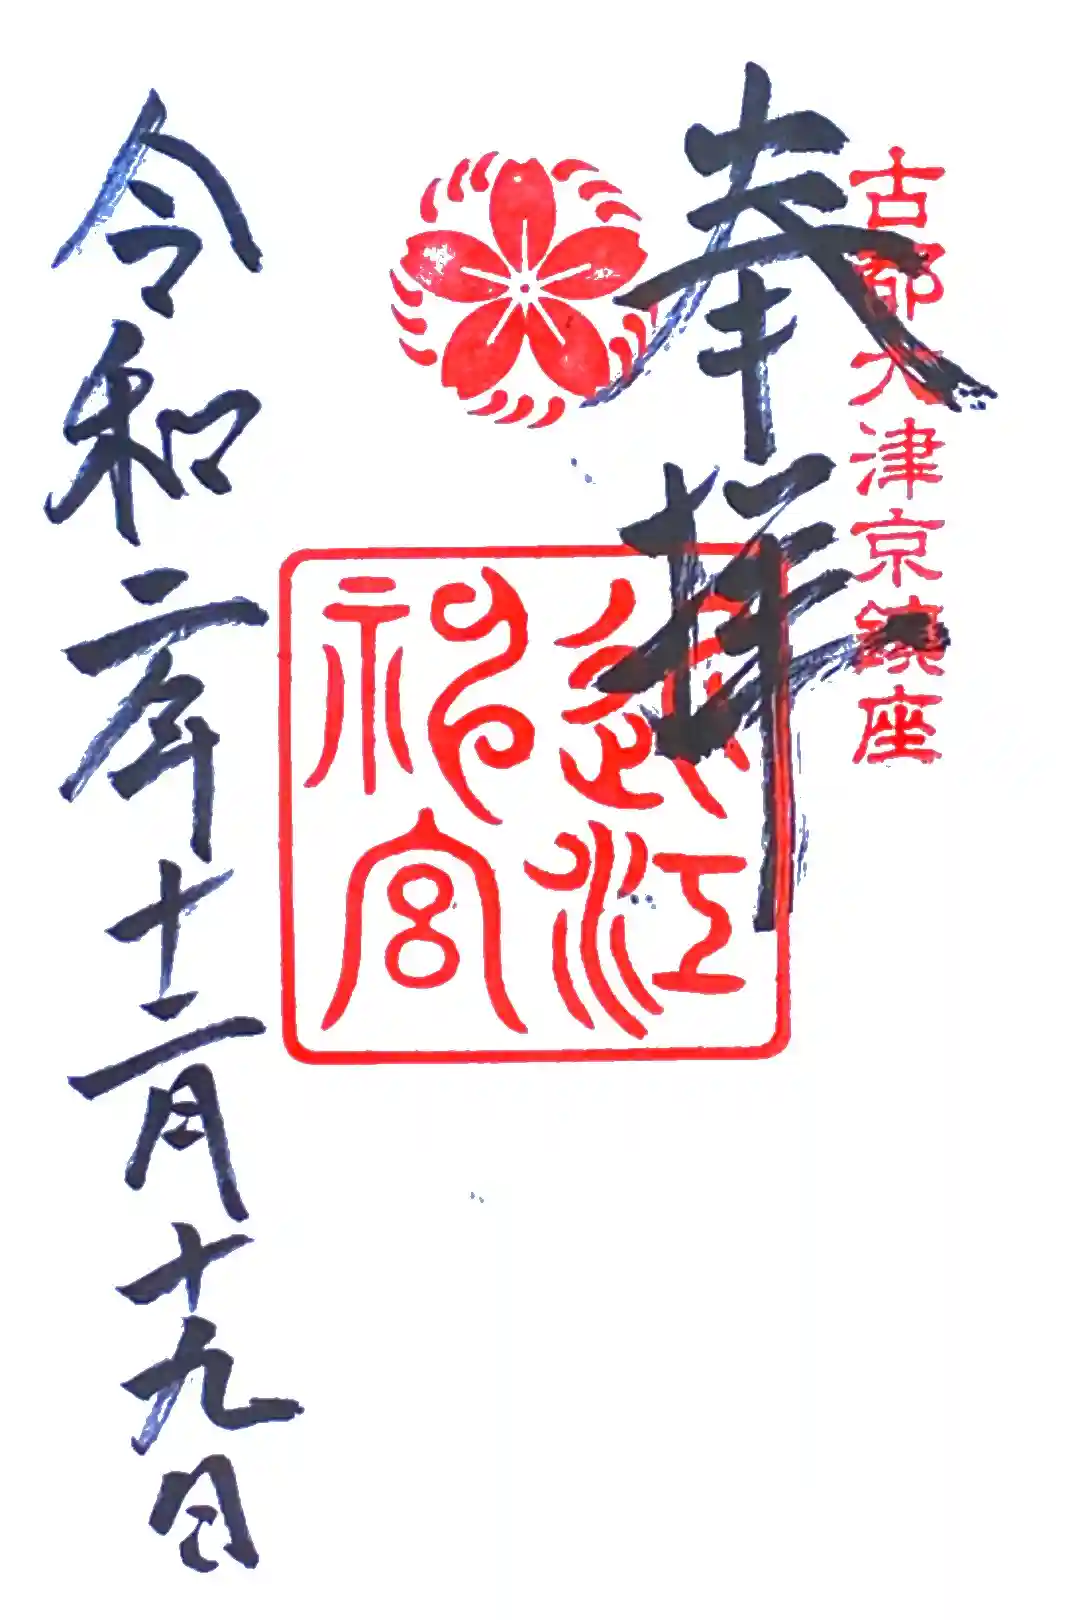 古都大津京鎮座
奉拝
近江
神宮
令和二年十二月十九日